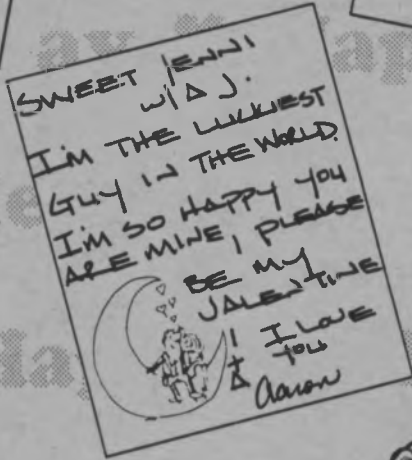 SWEET JENNI
W/ A J.
I'M THE LUCKIEST
GUY IN THE WORLD.
I'M SO HAPPY YOU
ARE MINE, PLEASE
BE MY
VALENTINE
I LOVE
YOU
Aaron